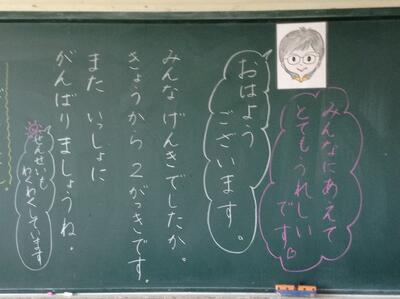 みんなにあえて
とてもうれしい
です♡
おはよう
ございます。
みんなげんきでしたか。
きょうから2がっきです。
また いっしょに
がんばりましょうね。
せんせいも
わくわくしています